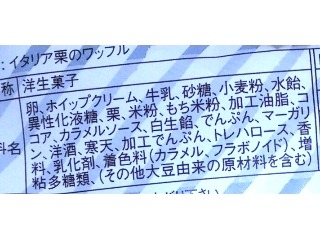 :イタリア栗のワッフル
称 洋生菓子
卵、ホイップクリーム、牛乳、砂糖、小麦粉、水飴、
異性化液糖、栗、米粉、もち米粉、加工油脂、コ
コア、カラメルソース、白生餡、でんぷん、マーガリ
料名 ン、洋酒、寒天、加工でんぷん、トレハロース、香
料、乳化剤、着色料(カラメル、フラボノイド)、増
粘多糖類、(その他大豆由来の原材料を含む)